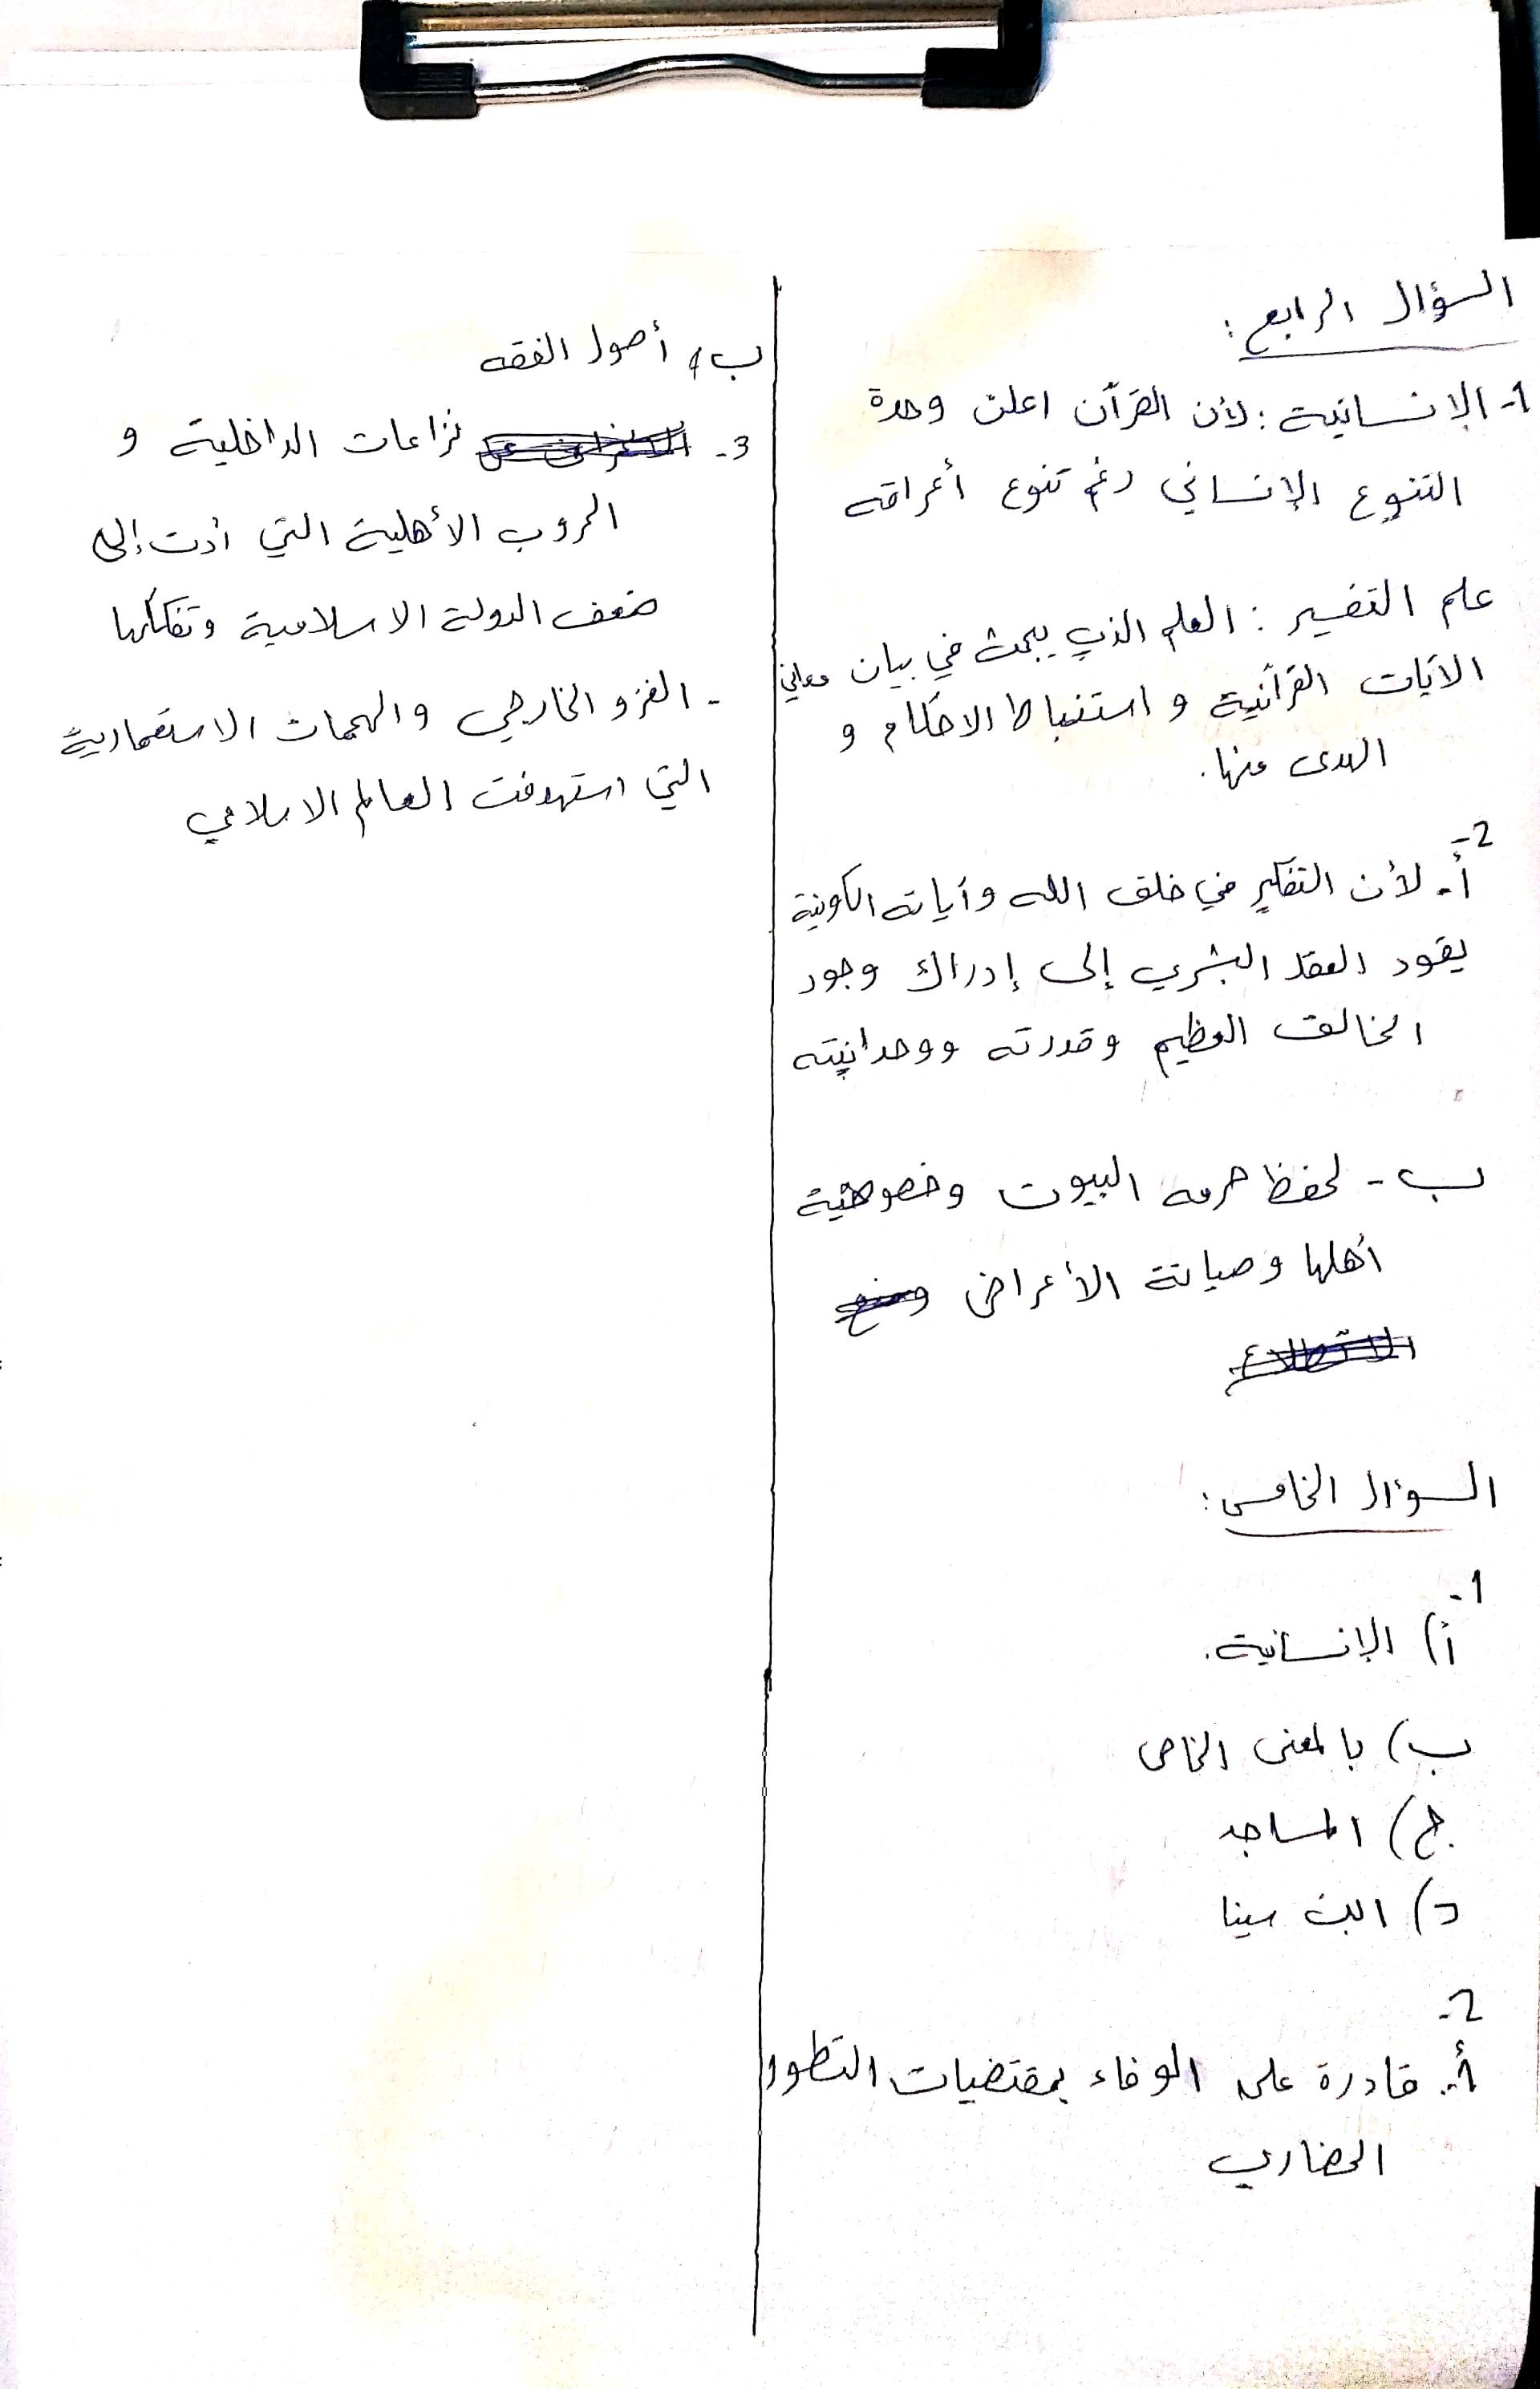 السؤال الرابع :
1- الإنسانية : لأن القرآن اعلن وحدة
التنوع الإنساني رغم تنوع أعراقه
علم التفسير : العلم الذي يبحث في بيان معاني
الآيات القرآنية و استنباط الاحكام و
الهدى منها .
2-
أ- لأن التفكير في خلق الله وآياته الكونية
يقود العقل البشري إلى إدراك وجود
الخالق العظيم وقدرته ووحدانيته
ب - لحفظ حرمه البيوت وخصوصية
أهلها وصيانة الأعراض ومنع
السؤال الخامس :
1-
أ) الإنسانية .
ب) بالمعنى الخاص
ج) المساجد
د) ابن سينا
2-
أ- قادرة على الوفاء بمقتضيات التطور
الحضاري
ب, أصول الفقه
3- نزاعات الداخلية و
الحروب الأهلية التي أدت إلى
ضعف الدولة الاسلامية وتفككها
- الغزو الخارجي والهجمات الاستعمارية
التي استهدفت العالم الاسلامي